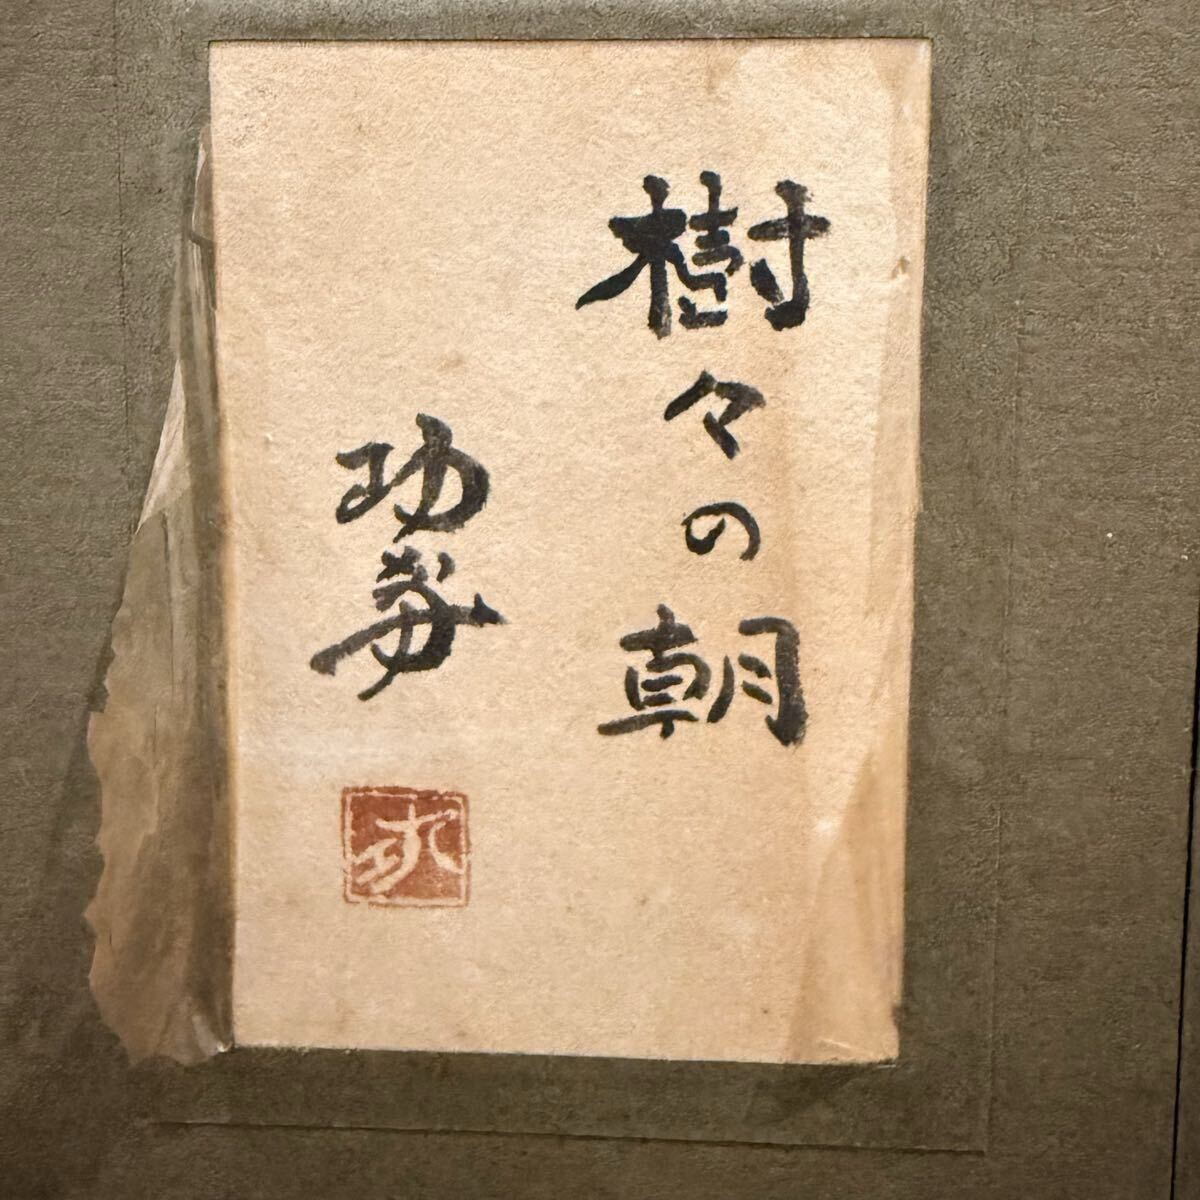 樹々の朝
功